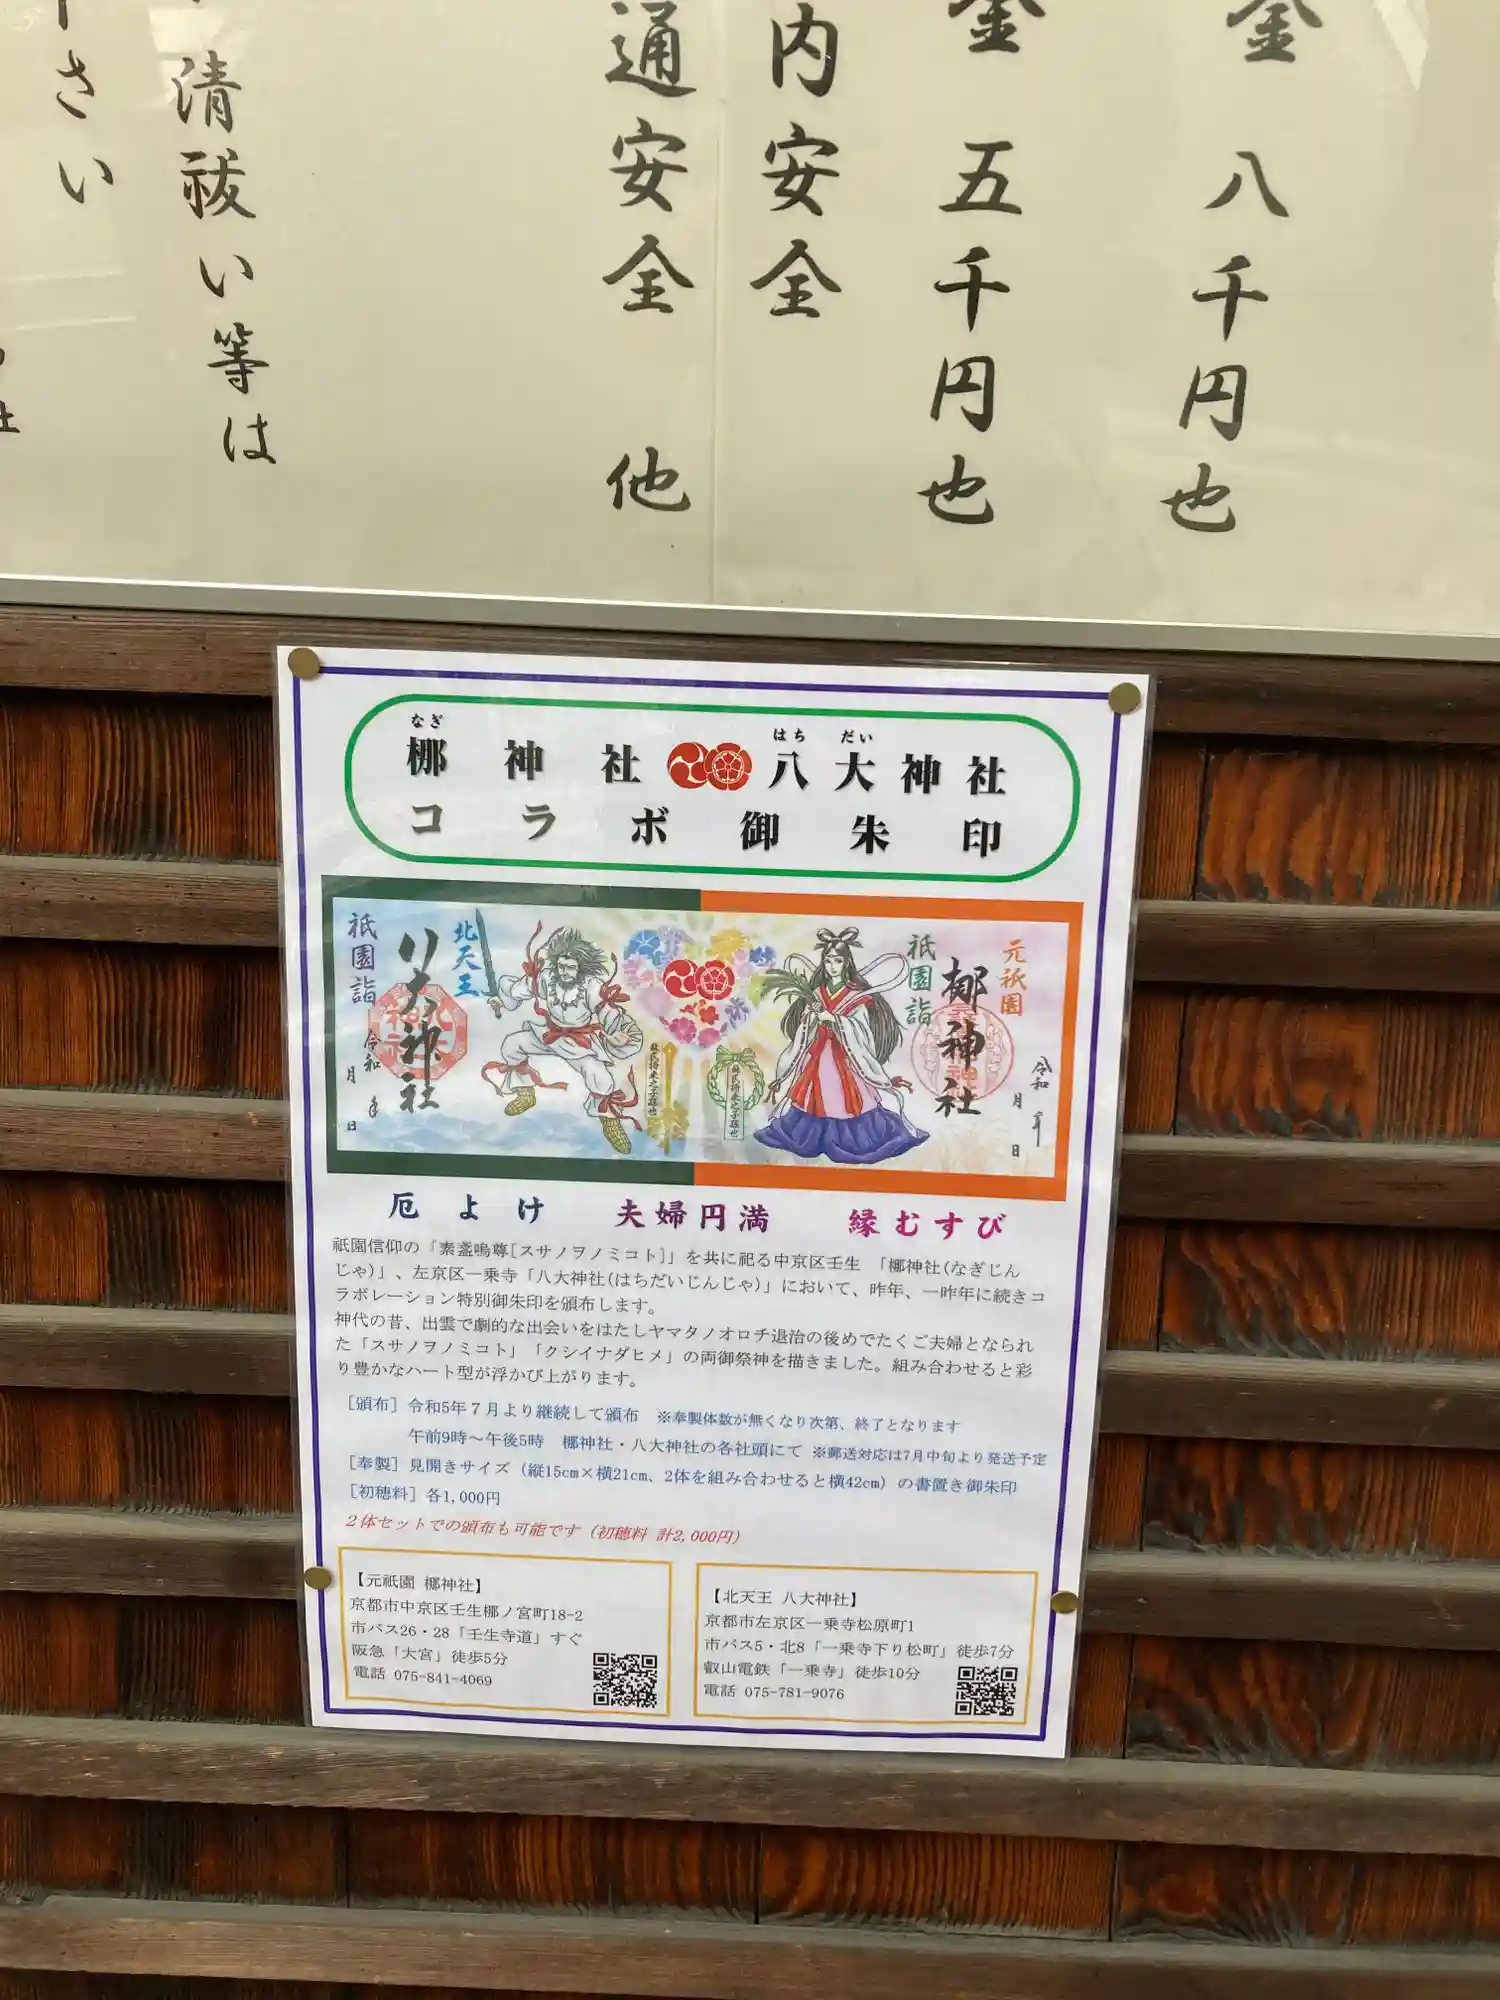 金
八千円也
金
五千円也
内安全
通安全 他
清祓い等は
さい
社
なぎ
梛神社
はち だい
八大神社
コラボ御朱印
祇園詣
八大神社
北天王
令和 年 月 日
蘇民将来之子孫也
蘇民将来之子孫也
祇園詣
梛神社
元祇園
令和 年 月 日
厄よけ 夫婦円満 縁むすび
祇園信仰の「素盞嗚尊[スサノヲノミコト]」を共に祀る中京区壬生 「梛神社(なぎじん
じゃ)」、左京区一乗寺「八大神社(はちだいじんじゃ)」において、昨年、一昨年に続きコ
ラボレーション特別御朱印を頒布します。
神代の昔、出雲で劇的な出会いをはたしヤマタノオロチ退治の後めでたくご夫婦となられ
た「スサノヲノミコト」「クシイナダヒメ」の両御祭神を描きました。組み合わせると彩
り豊かなハート型が浮かび上がります。
[頒布] 令和5年7月より継続して頒布 ※奉製体数が無くなり次第、終了となります
午前9時～午後5時 梛神社・八大神社の各社頭にて ※郵送対応は7月中旬より発送予定
[奉製] 見開きサイズ (縦15cm×横21cm、2体を組み合わせると横42cm) の書置き御朱印
[初穂料] 各1,000円
2体セットでの頒布も可能です (初穂料 計2,000円)
【元祇園 梛神社】
京都市中京区壬生梛ノ宮町18-2
市バス26・28「壬生寺道」すぐ
阪急「大宮」徒歩5分
電話 075-841-4069
【北天王 八大神社】
京都市左京区一乗寺松原町1
市バス5・北8「一乗寺下り松町」徒歩7分
叡山電鉄「一乗寺」徒歩10分
電話 075-781-9076